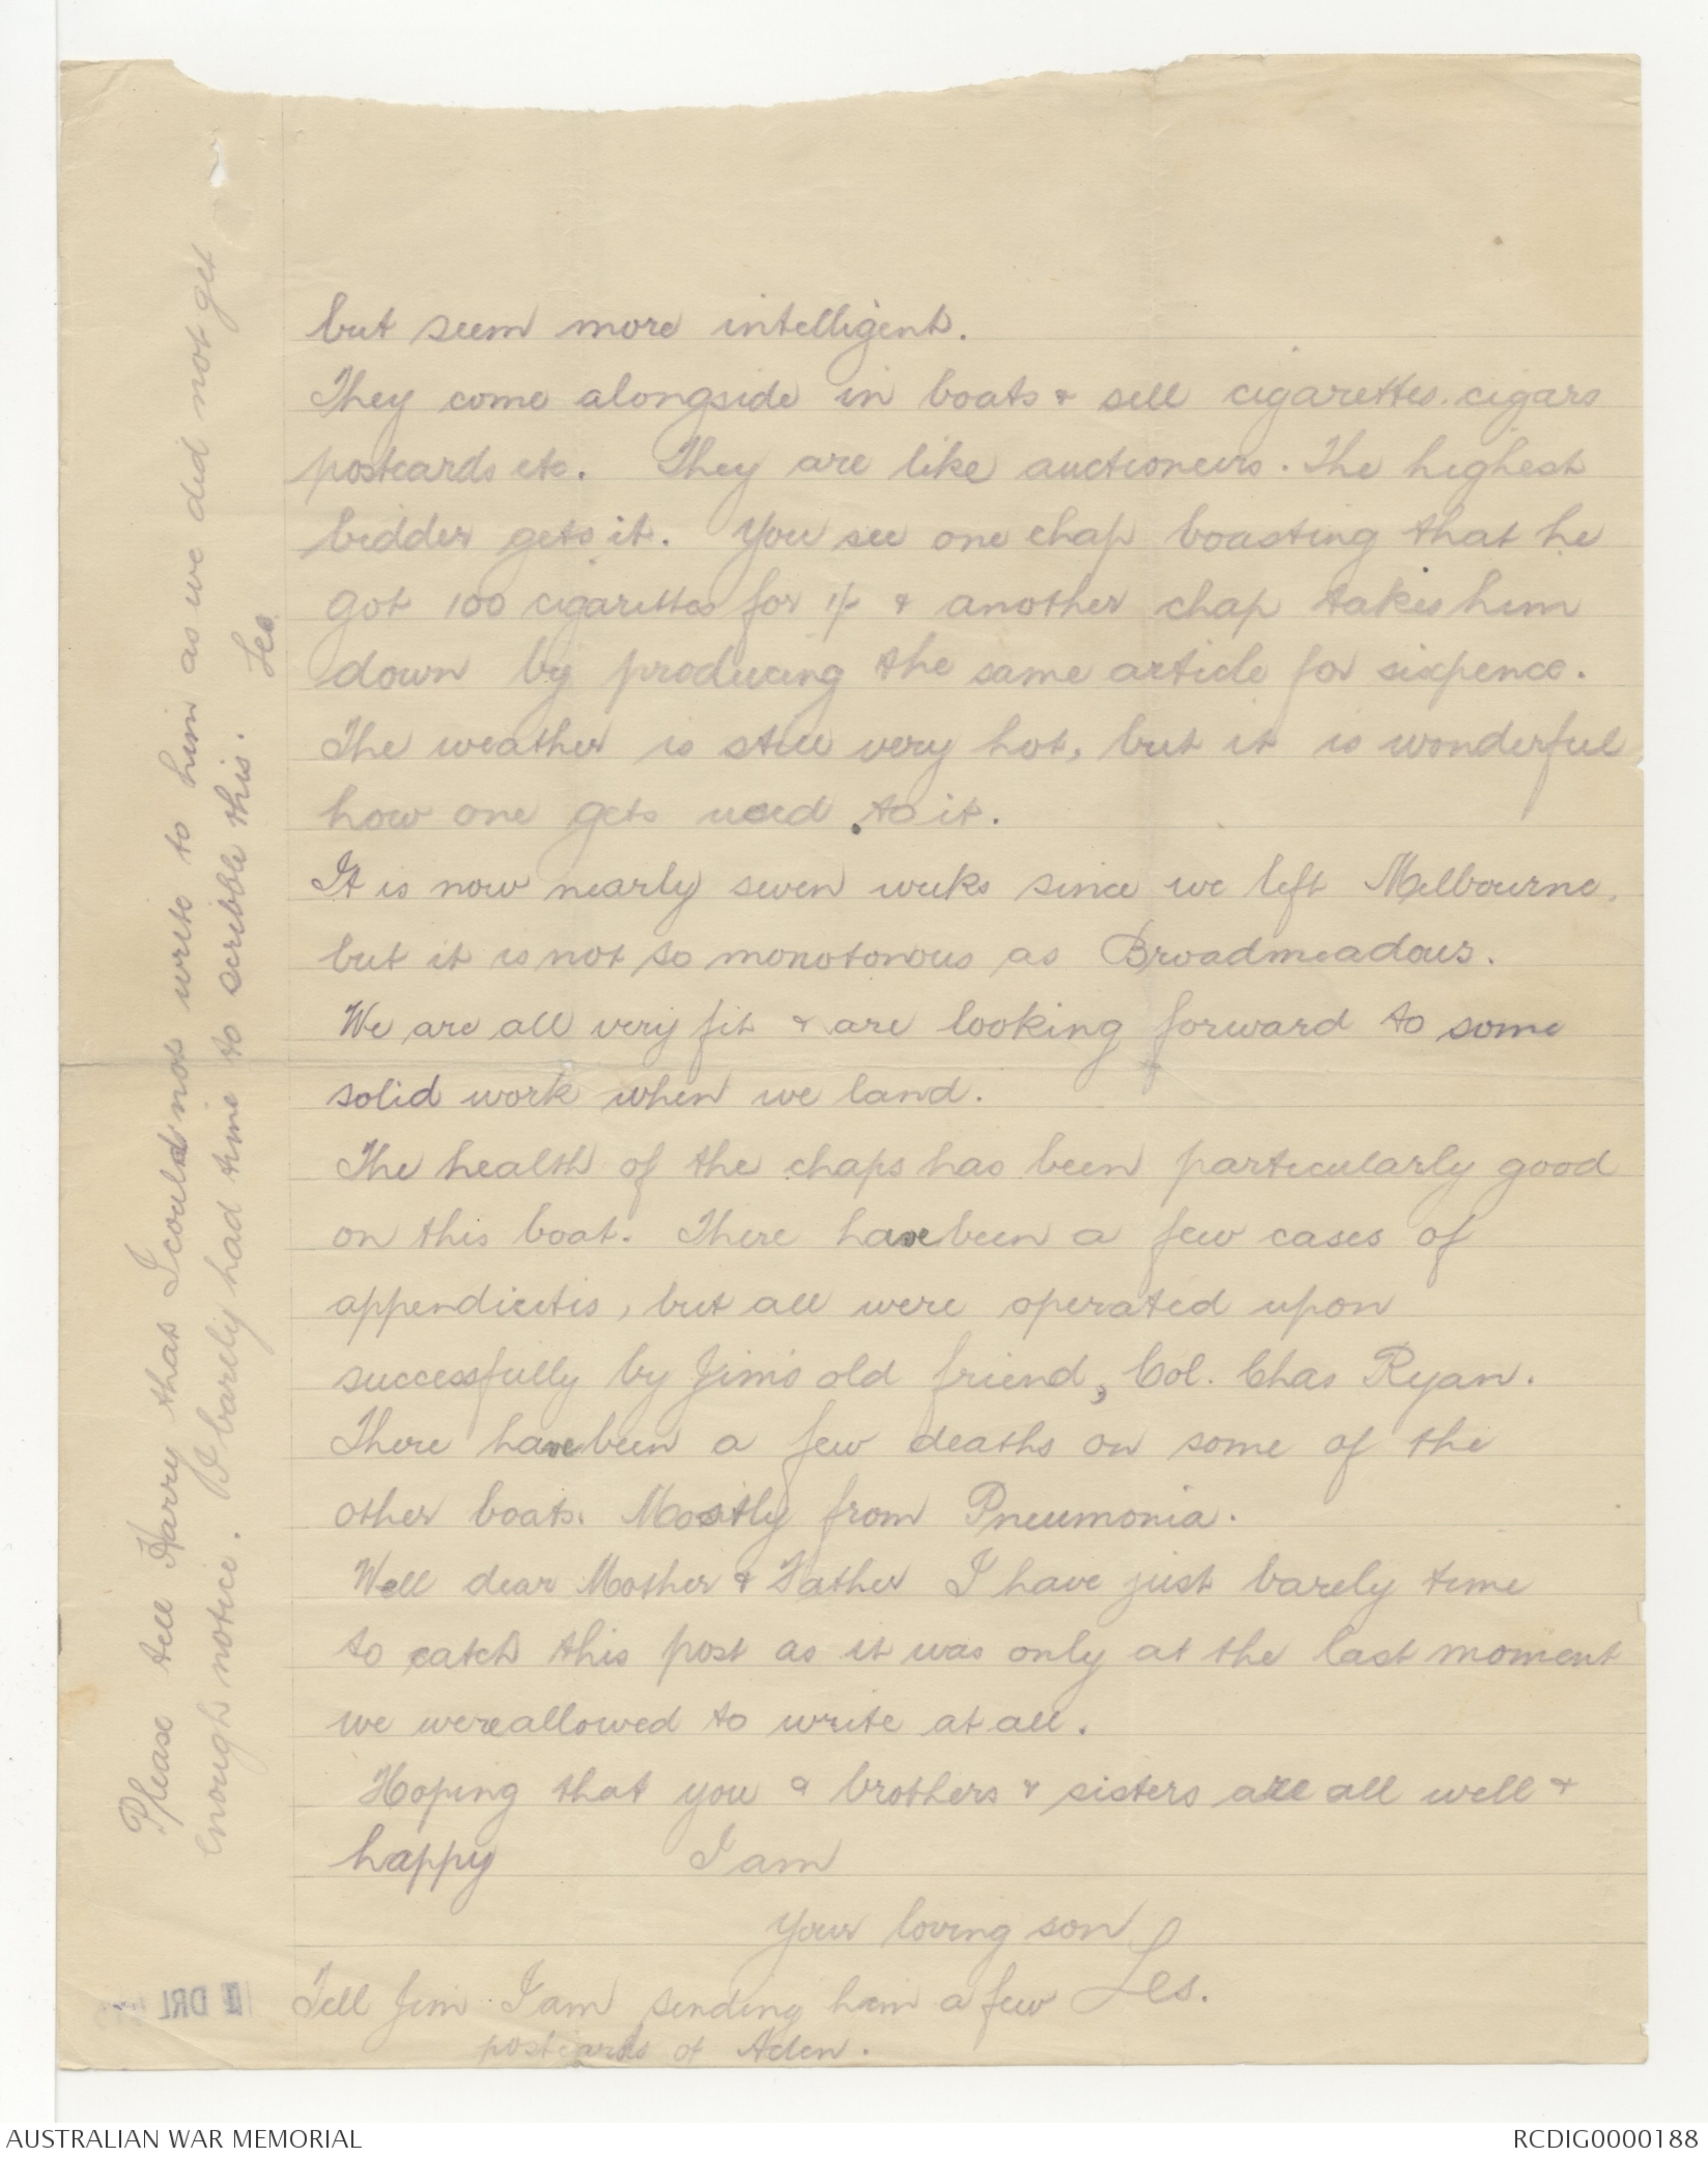 but seem more intelligent.
They come alongside in boats & sell cigarettes. cigars
postcards etc. They are like auctioneers. The highest
bidder gets it. You see one chap boasting that he
got 100 cigarettes for 1/- & another chap takes him
down by producing the same article for sixpence.
The weather is still very hot, but it is wonderful
how one gets used to it.
It is now nearly seven weeks since we left Melbourne,
but it is not so monotonous as Broadmeadows.
We are all very fit & are looking forward to some
solid work when we land.
The health of the chaps has been particularly good
on this boat. There have been a few cases of
appendicitis, but all were operated upon
successfully by Jim's old friend, Col. Chas Ryan.
There have been a few deaths on some of the
other boats. Mostly from Pneumonia.
Well dear Mother & Father I have just barely time
to catch this post as it was only at the last moment
we were allowed to write at all.
Hoping that you & brothers & sisters are all well &
happy I am
Your loving son
Les.
Tell Jim I am sending him a few
postcards of Aden.
Please tell Harry that I could not write to him as we did not get
enough notice. I barely had time to scribble this.
Les
DRL
AUSTRALIAN WAR MEMORIAL
RCDIG0000188